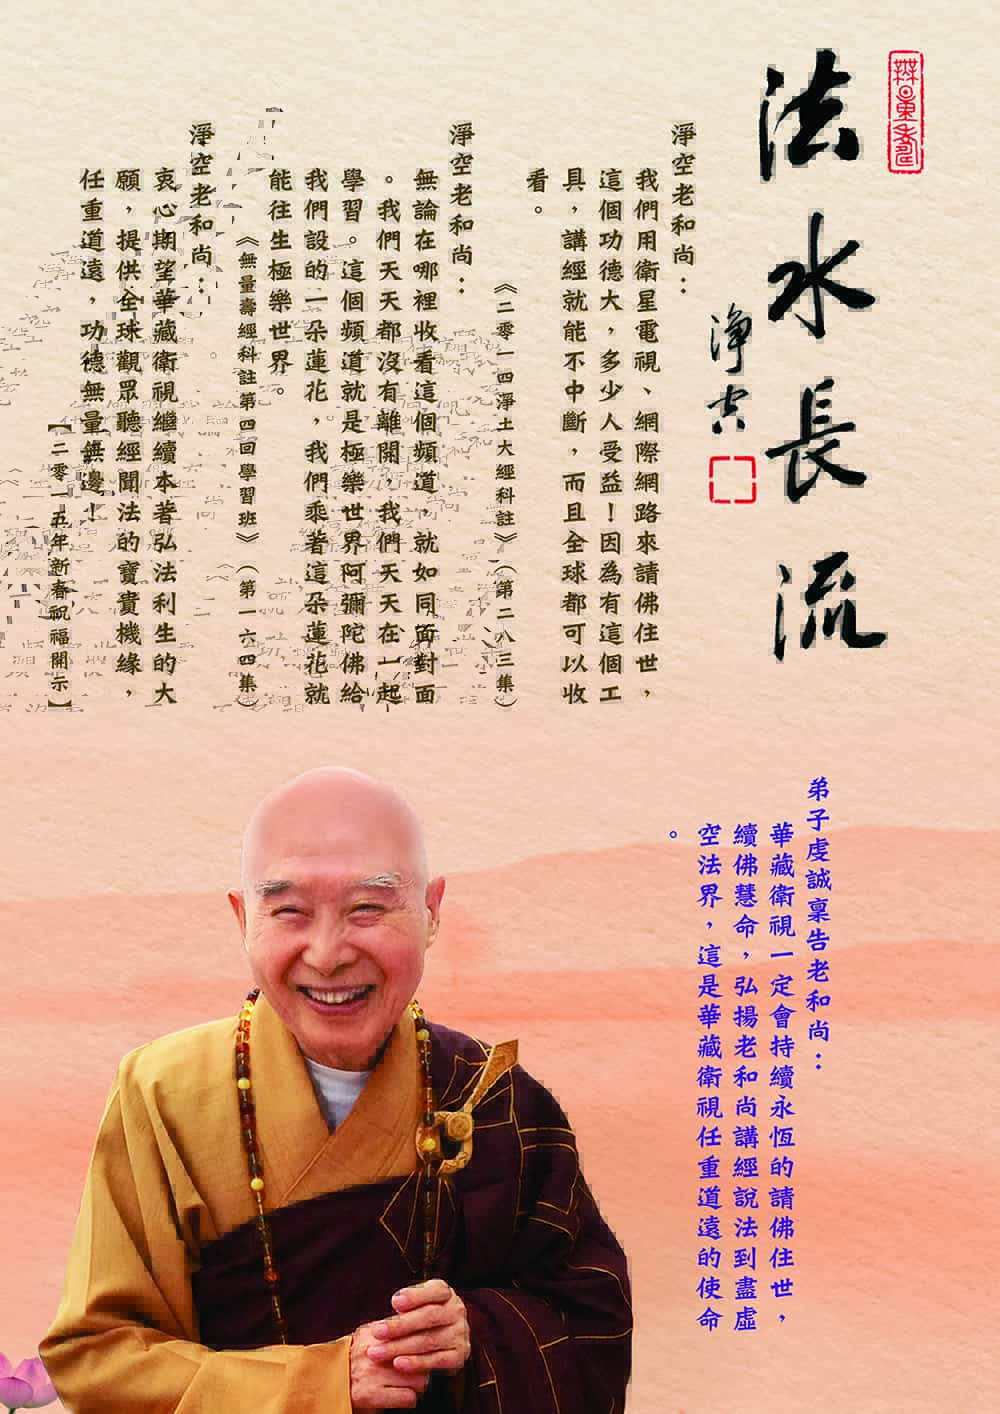 法水長流
淨空
淨空老和尚：
我們用衛星電視、網際網路來請佛住世，
這個功德大，多少人受益！因為有這個工
具，講經就能不中斷，而且全球都可以收
看。
《二零一四淨土大經科註》（第二八三集）
淨空老和尚：
無論在哪裡收看這個頻道，就如同面對面
學習。這個頻道就是極樂世界阿彌陀佛給
。我們天天都沒有離開，我們天天在一起
我們設的一朵蓮花，我們乘著這朵蓮花就
能往生極樂世界。
《無量壽經科註第四回學習班》（第一六四集）
淨空老和尚：
衷心期望華藏衛視繼續本著弘法利生的大
願，提供全球觀眾聽經聞法的寶貴機緣，
任重道遠，功德無量無邊！
【二零一五年新春祝福開示】
弟子虔誠稟告老和尚：
華藏衛視一定會持續永恆的請佛住世，
續佛慧命，弘揚老和尚講經說法到盡虛
空法界，這是華藏衛視任重道遠的使命
。